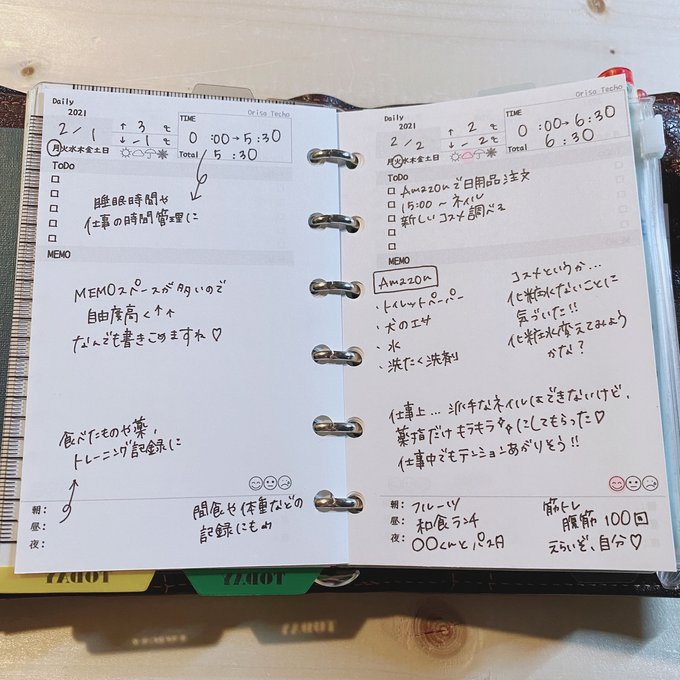 Daily
2021
Oriso Techo
2/1
↑ 3 ℃
↓ -1 ℃
月火水木金土日
TIME
0:00→5:30
Total 5:30
ToDo
睡眠時間や
仕事の時間管理に
MEMO
MEMOスペースが多いので
自由度高く↑↑
なんでも書きこめますね♡
食べたものや薬、
トレーニング記録に
朝:
昼:
夜:
間食や体重などの
記録にも◎
Daily
2021
Oriso Techo
2/2
↑ 2 ℃
↓ -2 ℃
月火水木金土日
TIME
0:00→6:30
Total 6:30
ToDo
Amazonで日用品注文
15:00〜ネイル
新しいコスメ調べる
MEMO
Amazon
・トイレットペーパー
・犬のエサ
・水
・洗たく洗剤
コスメというか…
化粧水ないことに
気づいた!!
化粧水変えてみよう
かな?
仕事上…派手なネイルはできないけど、
薬指だけキラキラにしてもらった♡
仕事中でもテンションあがりそう!!
朝: フルーツ
昼: 和食ランチ
夜: 〇〇くんとパスタ
筋トレ
腹筋100回
えらいぞ、自分♡
TODAY
TODAY